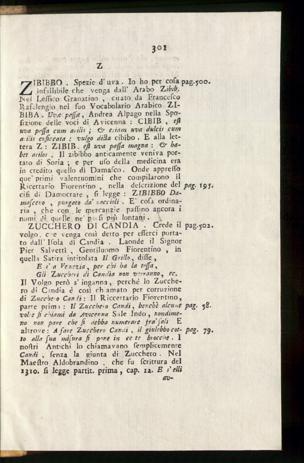 301
Z
ZIBIBBO. Spezie d'uva. Io ho per cosa pag.500.
infallibile che venga dall' Arabo Zibib.
Nel Lessico Granatino, citato da Francesco
Rafelengio nel suo Vocabolario Arabico ZI-
BIBA. Uva passa, Andrea Alpago nella Spo-
sizione delle voci di Avicenna: CIBIB, est
uva passa cum acilis; & etiam uva dulcis cum
illis exsiccata: vulgo dicta cibibo. E alla let-
tera Z: ZIBIB. est uva passa magna: & ha-
bet acilos. Il zibibbo anticamente veniva por-
tato di Soria; e per uso della medicina era
in credito quello di Damasco. Onde appresso
que' primi valentuomini che compilarono il
Ricettario Fiorentino, nella descrizione del pag. 195.
cisì di Damocrate, si legge: ZIBIBBO Da-
masceno, purgato da' noccioli. E' cosa ordina-
ria, che con le mercanzie passino ancora i
nomi di quelle ne' paesi più lontani.
ZUCCHERO DI CANDIA. Crede il pag.502.
volgo, che venga così detto per esserci porta-
to dall' Isola di Candia. Laonde il Signor
Pier Salvetti, Gentiluomo Fiorentino, in
quella Satira intitolata Il Grillo, disse,
E s'a Venezia, per chi ha la tossa,
Gli Zuccheri di Candia non verranno, ec.
Il Volgo però s'inganna, perchè lo Zucche-
ro di Candia è così chiamato per corruzione
di Zucchero Candi: Il Riccettario Fiorentino,
parte prima: Il Zucchero Candi, benchè alcuna pag. 58.
volta si chiami da Avicenna Sale Indo, nondime-
no non pare che si debba numerare tra' sali E
altrove: A fare Zucchero Candi, il giulebbo cot- pag. 79.
to alla sua misura si pone in certe brocche. I
nostri Antichi lo chiamavano semplicemente
Candi, senza la giunta di Zucchero. Nel
Maestro Aldobrandino, che fu scrittura del
1310. si legge partit. prima, cap. 12. E s'elli
av-